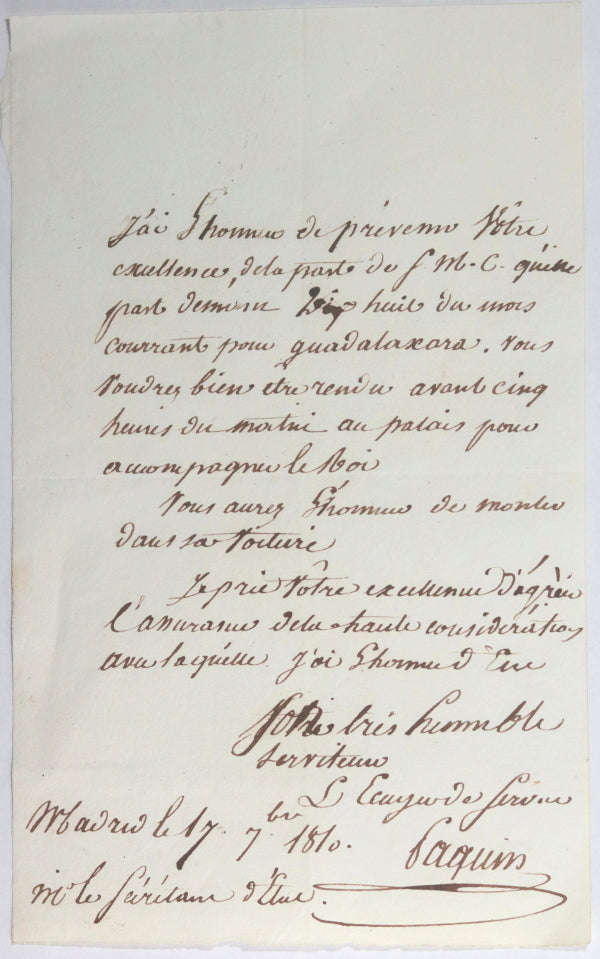 J'ai l'honneur de prévenir Vôtre
excellence, de la part de S. M. C. qu'elle
part demain dix huit du mois
courrant pour guadalaxara. Vous
voudrez bien être rendu avant cinq
heures du matin au palais pour
accompagner le Roi
Vous aurez l'honneur de monter
dans sa Voiture
Je prie Vôtre excellence d'agréer
l'assurance de la haute considération
avec laquelle j'ai l'honneur d'Etre
Votre très humble
serviteur
L'Ecuyer de Service
Madrid le 17. 7.bre 1810.
Paquin
Mr le Sécrétaire d'État.